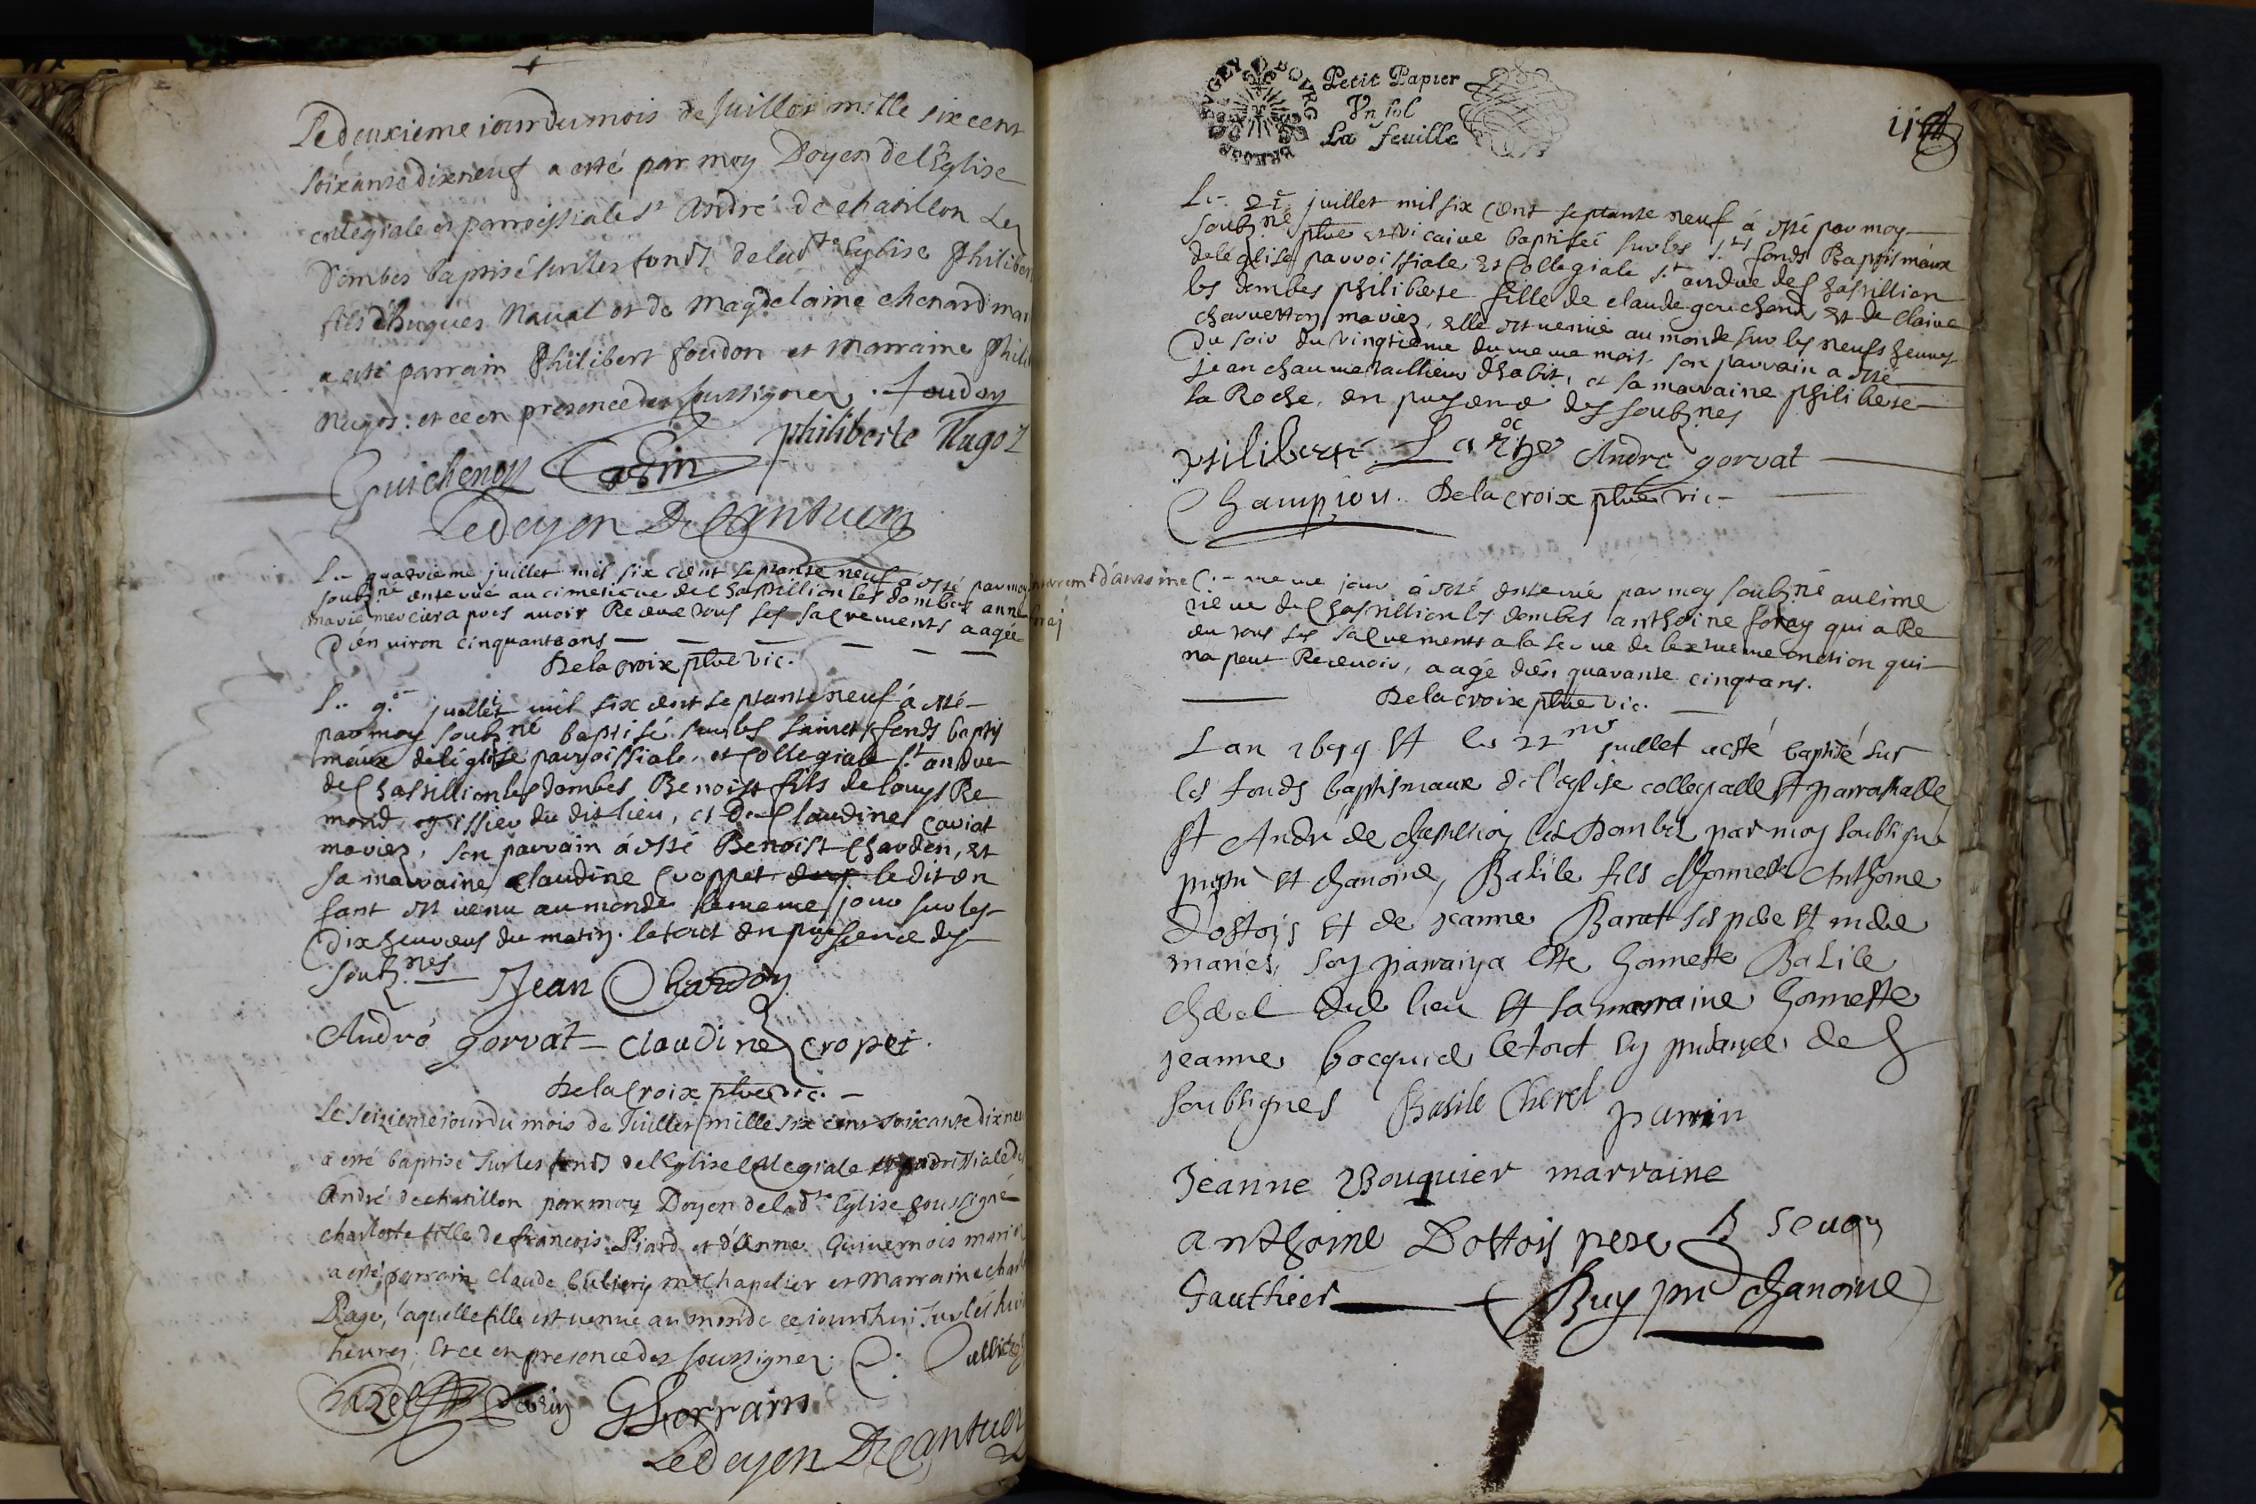 Le deuxieme iour du mois de Juillet mille six cent
soixante dix neuf a esté par moy Doyen de l'Eglise
collegiale et parroissiale St André de chatillon Les
Dombes baptisé sur les fonds de lad.te Eglise Philibert
fils d'hugues Naual et de Magdelaine chenard mari
a esté parrain Philibert foudon et Marraine Phili
Nugos: et ce en presence des soussignez. foudon
Guichenon philiberte Nugoz
Le doyen
Le quatrieme juillet mil six cent septante neuf a esté par moy
soubz.né enterrée au cimetiere de Chastillion les dombes anne
marie mercier apres auoir Receue tous ses sacrements aagée
d'enuiron cinquante ans
Delacroix ptre vic.
Le 9.e juillet mil six cent septante neuf á esté
par moy soubz.né baptisé sur les saincts fonds baptis
máux de léglise parroissiale et Collegiale s.t andre
de Chastillion les dombes Benoist fils de louys Re
mond du dit lieu, et de Claudine Caviat
mariez, son parrain á esté Benoist Chardon, et
sa marraine claudine Croppet le dit en
fant est uenu au monde le meme jour sur les
dix heures du matin. le tout en presence des
soubz.nes Jean Chardon
André gorvat claudine cropet
Delacroix ptre vic.
Le seizieme iour du mois de Juillet mille six cent soixante dix neu
a esté baptisé sur les fonds de l'Eglise collegiale et parroissiale de
André de chatillon par moy Doyen de lad.te Eglise soussigné
charlotte fille de francois Piard et d'Anne Guivernois mariez
a esté parrain claude Cullieri m.e Chapelier et Marraine charl
Page, laquelle fille est uenue au monde ce iourdhui sur les huit
heures. Et ce en presence des soussignez.
GLorrain
Le doyen
BOVRG BVGEY BRESSE
Petit Papier
Vn sol
La feuille
Le 21 juillet mil six cent septante neuf á esté par moy
soubz.né ptre et vicaire baptiseé sur les s.ts fonds Baptismáux
de léglise parroissiale et Collegiale s.t andre de Chastillion
les dombes philiberte fille de claude gouchond et de claire
charretton mariez, elle est uenue au monde sur les neufs heures
du soir du vingtieme du meme mois. son parrain a esté
jean chaume taillieur d'habit, et sa marraine philiberte
la Roche, en presence des soubz.nes
philiberte La roche André gorvat
Champion. Delacroix ptre vic.
Le meme jour á esté enterré par moy soubz.né au cime
tiere de Chastillion les dombes anthoine foray qui a Re
ceu tous ses sacrements a la reserue de lextreme onction qui
na peut Receuoir, aagé d'en quarante cinq ans.
Delacroix ptre vic.
Lan 1679 et le 22me juillet a esté baptisé sur
les fonds baptismaux de l'eglise collegialle et parrossialle
St André de chastillon les Dombes par moy soubsigné
prestre et chanoine, Basile fils d'honneste Anthoine
Dostois et de jeanne Barat ses pere et mere
mariés, son parrain a esté honneste Basile
Cherel dud lieu et sa marraine honneste
jeanne bocquier le tout en presance des
soubsignés Basile Cherel parrin
Jeanne Bouquier marraine
anthoine Dottois pere
Gauthier Buy chanoine